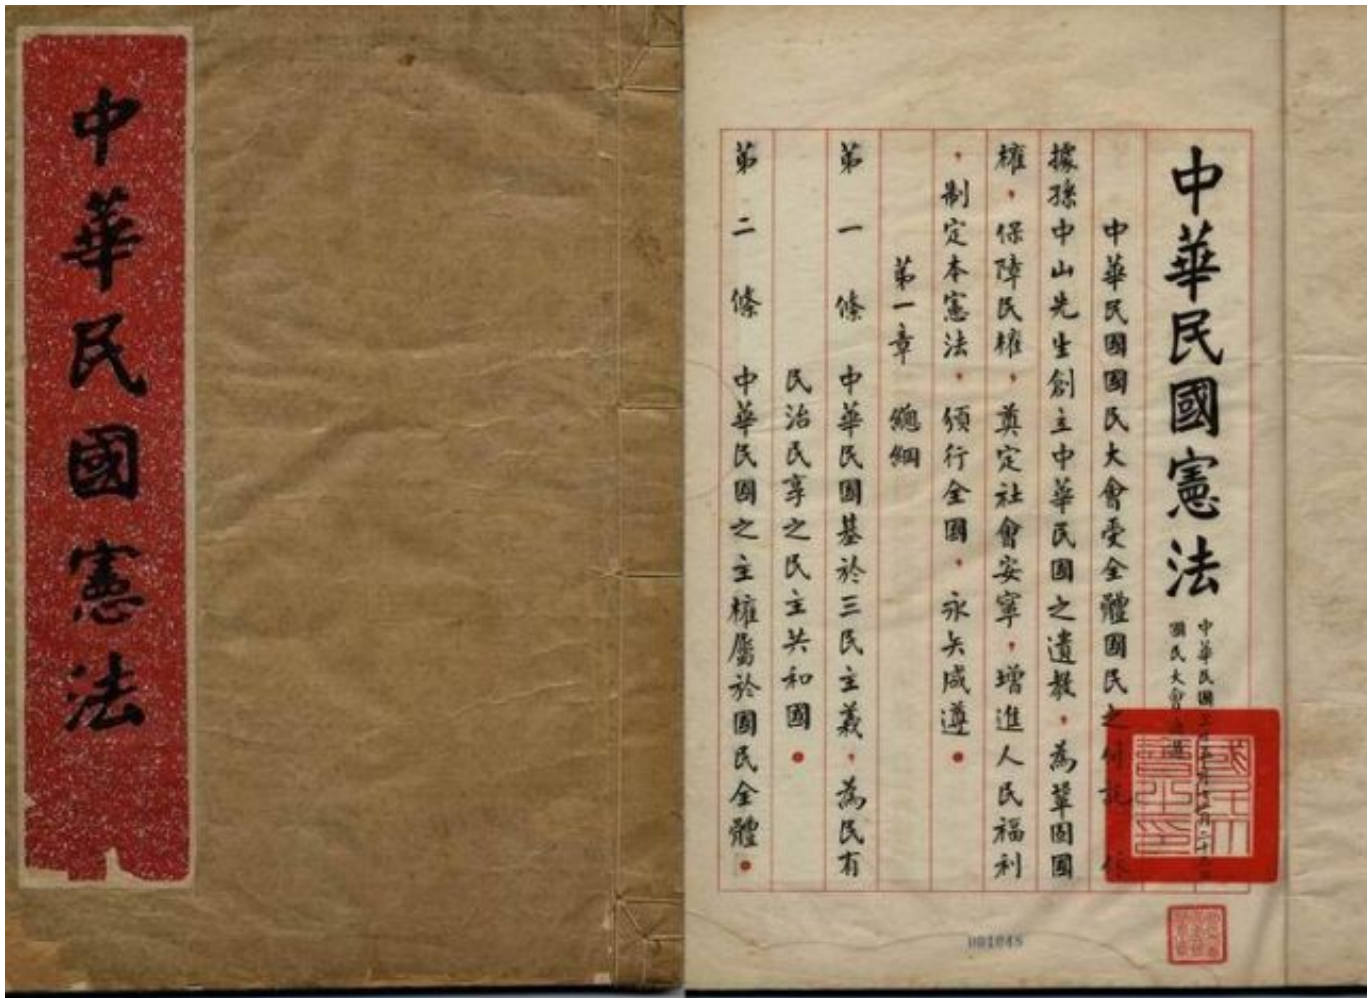 中華民國憲法
中華民國憲法
國民大會
中華民國國民大會受全體國民之付託依
據孫中山先生創立中華民國之遺教，為鞏固國
權，保障民權，奠定社會安寧，增進人民福利
，制定本憲法，頒行全國，永矢咸遵。
第一章 總綱
第一條 中華民國基於三民主義，為民有
民治民享之民主共和國。
第二條 中華民國之主權屬於國民全體。
001048